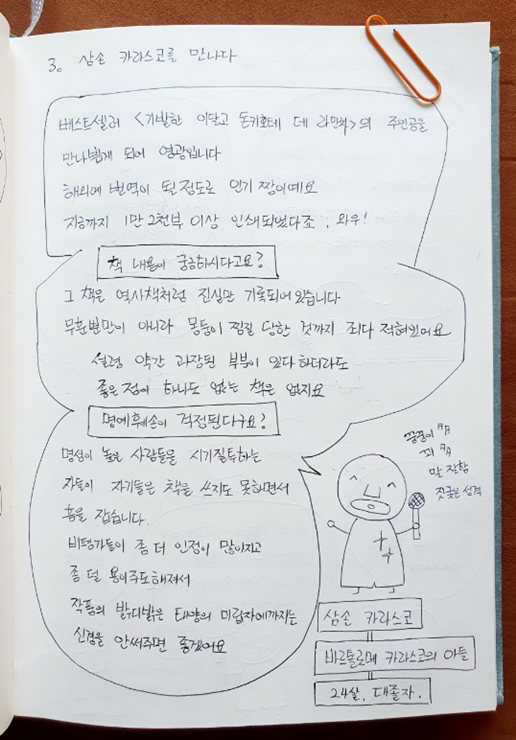 3. 삼손 카라스코를 만나다
베스트셀러 <기발한 이달고 돈키호테 데 라만차>의 주인공을
만나뵙게 되어 영광입니다
해외에 번역이 될 정도로 인기 짱이예요
지금까지 1만 2천부 이상 인쇄되었다죠. 와우!
책 내용이 궁금하시다고요?
그 책은 역사책처럼 진실만 기록되어 있습니다
무훈별만이 아니라 몽둥이 찜질 당한 것까지 죄다 적혀있어요
설령 약간 과장된 부분이 있다 하더라도
좋은 점이 하나도 없는 책은 없지요
명예훼손이 걱정된다구요?
명성이 높은 사람들을 시기질투하는
자들이 자기들은 책을 쓰지도 못하면서
흠을 잡습니다.
비평가들이 좀 더 인정이 많아지고
좀 덜 용의주도해져서
작품의 밝디밝은 태양의 미립자에까지는
신경을 안써주면 좋겠어요
꿍꿍이 多
꾀 多
말 잘함
짓궂은 성격
삼손 카라스코
바르톨로메 카라스코의 아들
24살. 대졸자.